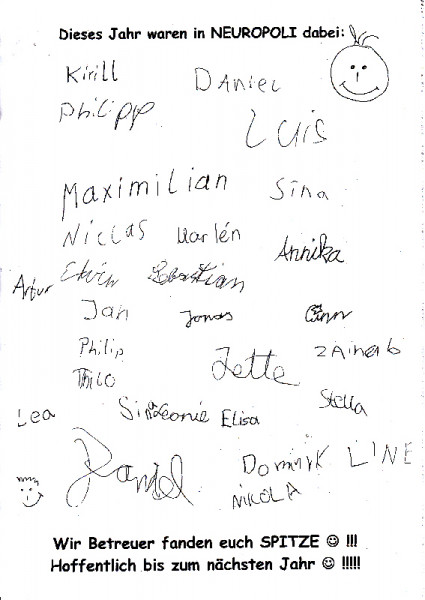 Dieses Jahr waren in NEUROPOLI dabei:
Kirill Daniel
Philipp Luis
Maximilian Sina
Niclas Marlén Annika
Artur Sebastian
Jan Jonas
Philip Jette Zainab
Thilo
Lea Elisa Stella
Daniel Dominik LINE
NIKOLA
Wir Betreuer fanden euch SPITZE ☺ !!!
Hoffentlich bis zum nächsten Jahr ☺ !!!!!